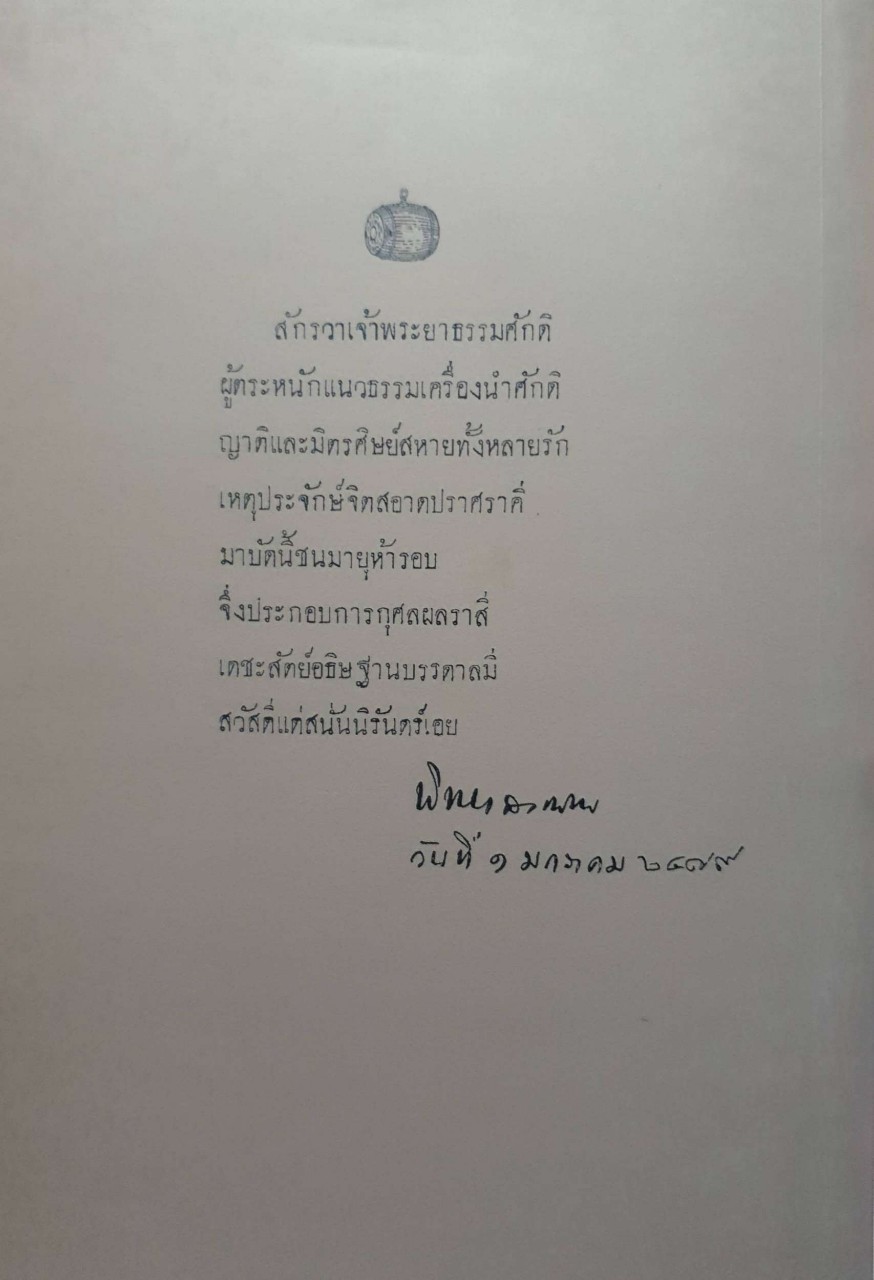 สักรวาเจ้าพระยาธรรมศักดิ
ผู้ตระหนักแนวธรรมเครื่องนำศักดิ
ญาติและมิตรศิษย์สหายทั้งหลายรัก
เหตุประจักษ์จิตสอาดปราศราคี
มาบัดนี้ชนมายุห้ารอบ
จึ่งประกอบการกุศลผลราสี
เดชะสัตย์อธิษฐานบรรดาลมี
สวัสดิ์แด่สนั่นนิรันดร์เอย
วันที่ ๑ มกราคม ๒๔๗๙